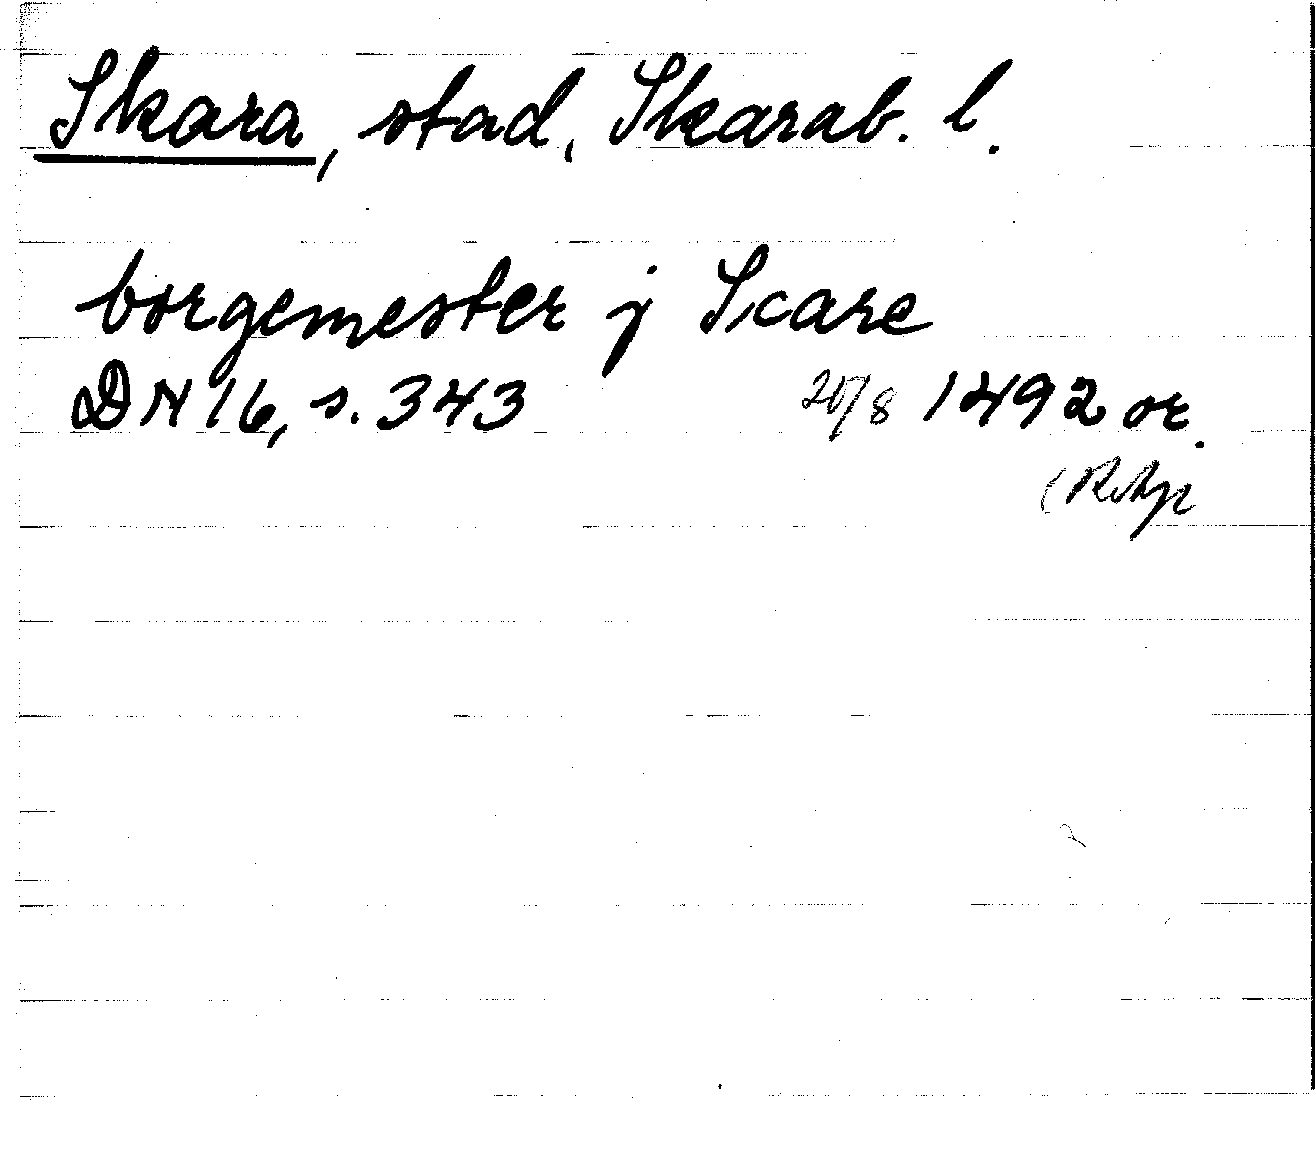 Skara, stad, Skarab. l.
borgemester j Scare
DN 16, s. 343 20/8 1492 or.